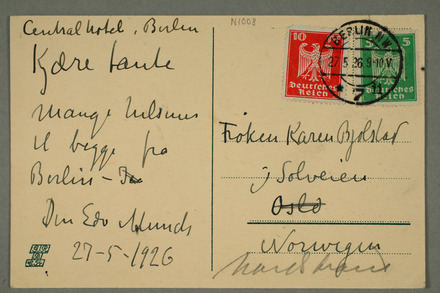 Centralhotel, Berlin
Kjære tante
Mange hilsener
til begge fra
Berlin –
Din Edv Munch
27-5-1926
N1008
10
Deutsches
Reich
5
Deutsches
Reich
BERLIN N.W.
27.5.26.9-10V.
7
Frøken Karen Bjølstad
Solveien
Oslo
Norwegen
Nordstrand